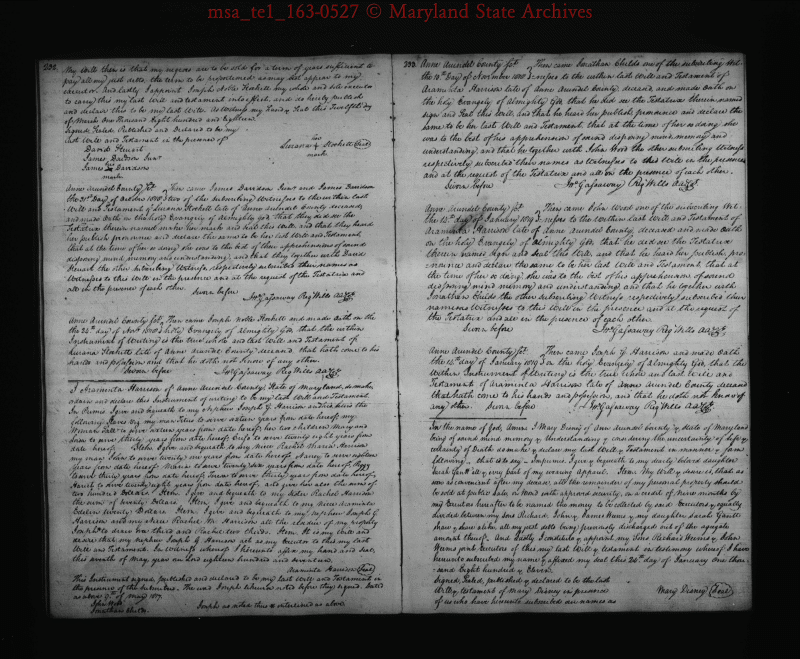 msa_te1_163-0527 © Maryland State Archives
232
My Will then is that my negroes are to be sold for a term of years sufficient to
pay all my just debts, the term to be
executor And lastly I appoint Joseph Noble Stockett my whole and sole executor
to carry this my last will and testament into effect, and do hereby publish
and declare this to be my last Will. As witness my Hand & Seal this Twelfth day
of March One Thousand Eight hundred and eighteen
Signed, Sealed, Published and Declared to be my
last Will and Testament in the presence of
her
Lurana + Stockett (Seal)
mark
David Steuart
James Davison Junr
his
James x Davidson
mark
Anne Arundel County Sct. Then came James Davidson Junr and James Davidson
the 31st Day of October 1818 two of the subscribing Witnesses to the within last
Will and Testament of Lurana Stockett late of Anne Arundel County deceased,
and made Oath on the Holy Evangely of Almighty God, that they did see the
Testatrix therein named make her mark and seal this Will, and that they heard
her publish pronounce and declare the same to be her last Will and Testament,
that at the time of her so doing she was to the best of their apprehensions of sound
disposing mind, memory and understanding, and that they together with David
Steuart the other subscribing Witness, respectively subscribed their names as
Witnesses to this Will in the presence and at the request of the Testatrix and
all in the presence of each other.
Sworn before Jno Gassaway Reg Wills AA Cty
Anne Arundel County Sct. Then came Joseph Noble Stockett and made oath on
the 24th day of Novr 1818 Holy Evangely of Almighty God, that the within
Instrument of Writing is the true whole and last Will and Testament of
Lurana Stockett late of Anne Arundel County deceased, that hath come to his
hands and possession and that he doth not know of any other.
Sworn before Jno Gassaway Reg Wills AA Cty
I Araminta Harrison of Anne Arundel County, State of Maryland, do make
ordain and declare this Instrument of writing to be my last Will and Testament
In Primis I give and bequeath to my Nephew Joseph G Harrison
following slaves
Woman
them to serve thirty years from date hereof
date hereof Item I give and bequeath to my Niece Rachel Harrison
my man John to serve twenty one years from date hereof, Nancy to serve
years from date hereof Maria to serve twenty six years from date hereof,
to serve thirty years from date hereof
Harriet to serve thirty eight years from date hereof, also give her also the sum of
two hundred Dollars. Item I give and bequeath to my sister Rachel Harrison
the sum of twenty Dollars Item I give and bequeath to my niece Araminta
twenty Dollars Item I give and bequeath to my nephew Joseph G
Harrison and my niece Rachel Harrison all the residue of my property
Joseph to draw one third and Rachel two thirds. Item It is my Will and
desire that my nephew Joseph G Harrison act as my executor to this my last
Will and Testament. In witness whereof I hereunto affix my hand and seal,
this ninth of May, year our Lord eighteen hundred and seventeen.
Araminta Harrison (Seal)
This Instrument signed, published and declared to be my last Will and Testament in
the presence of the Subscribers. The word Joseph interlined before they signed. Dated
as above 9th of May 1817.
John Wood
Jonathan Childs
Joseph as is interlined as above
233
Anne Arundel County Sct. Then came Jonathan Childs one of the subscribing Wit-
the 10th Day of November 1818 nesses to the within last Will and Testament of
Araminta Harrison late of Anne Arundel County, deceased, and made Oath on
the Holy Evangely of Almighty God, that he did see the Testatrix therein named
sign and seal this Will, and that he heard her publish pronounce and declare the
same to be her last Will and Testament, that at the time of her so doing, she
was to the best of his apprehension of sound disposing mind, memory and
understanding, and that he together with John Wood the other subscribing Witness
respectively subscribed their names as Witnesses to this Will in the presence
and at the request of the Testatrix and all in the presence of each other.
Sworn before Jno Gassaway Reg Wills AA Cty
Anne Arundel County Sct. Then came John Wood one of the subscribing Wit-
the 12th day of January 1819 nesses to the within last Will and Testament of
Araminta Harrison late of Anne Arundel County, deceased and made Oath
on the Holy Evangely of Almighty God, that he did see the Testatrix
therein named sign and seal this Will, and that he heard her publish, pro-
nounce and declare the same to be her last Will and Testament that at
the time of her so doing, she was to the best of his apprehension of sound
disposing mind memory and understanding, and that he together with
Jonathan Childs the other subscribing Witness, respectively subscribed their
names Witnesses to this Will in the presence and at the request of
the Testatrix and all in the presence of each other.
Sworn before Jno Gassaway Reg Wills AA Cty
Anne Arundel County Sct. Then came Joseph G. Harrison and made Oath
the 12th day of January 1819 on the holy Evangely of Almighty God, that the
Within Instrument of Writing is the true whole and last Will and
Testament of Araminta Harrison late of Anne Arundel County deceased
that hath come to his hands and possession, and that he doth not know of
any other. Sworn before Jno Gassaway Reg Wills AA Cty
In the name of God, Amen. I Mary Disney of Ann Arundel County & State of Maryland
being of sound mind memory & Understanding & considering the uncertainty of life &
certainty of Death do make & declare my last Will & Testament in manner & form
following, that is to say Imprimis, I give & bequeath to my dearly beloved daughter
Sarah Gantt all & every part of my wearing apparel. Item My Will & desire is, that as
soon as convenient after my decease all the remainder of my personal property should
be sold at public sale, on bond with approved security, on a credit of Nine months by
my Executors hereafter to be named the money to be collected by said Executors, & equally
divided between my Sons Richard Disney, James Disney & my daughter Sarah Gantt
share & share alike, all my just debts being previously discharged out of the agregate
amount thereof. And Lastly I constitute & appoint, my Sons Richard Weems & John
Weems joint Executors of this my last Will & testament in testimony whereof I have
hereunto subscribed my name & affixed my seal this 20th day of January One thou-
sand Eight hundred & Eleven.
Signed, Sealed, published & declared to be the last
Will & testament of Mary Disney in presence
of us who have hereunto subscribed our names as
Mary Disney (Seal)